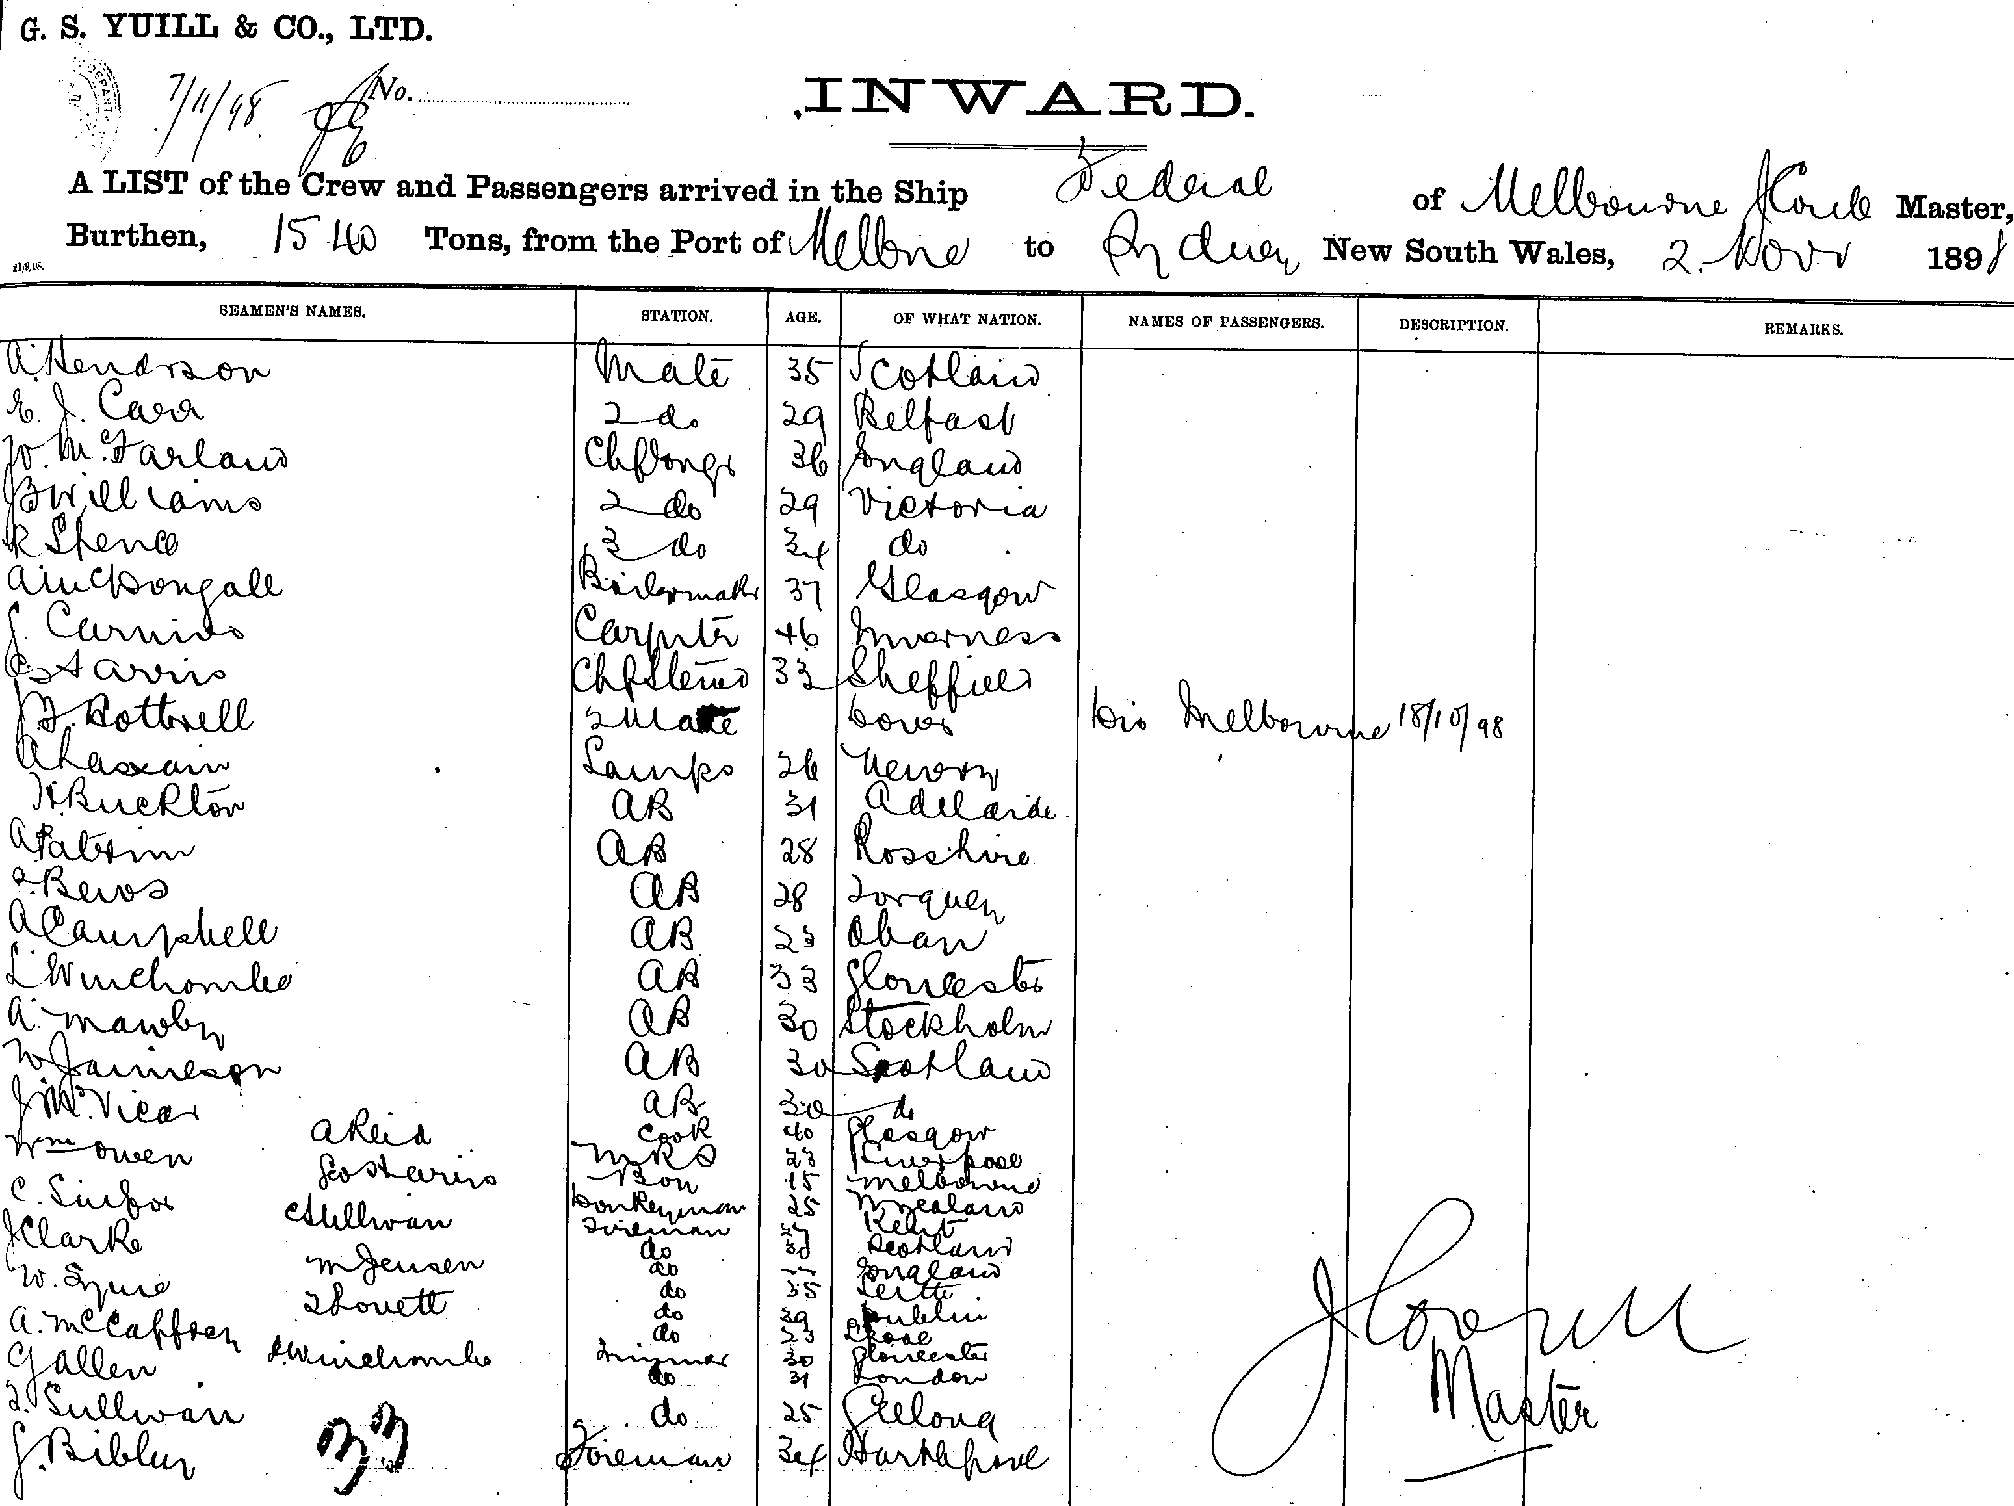 G. S. YUILL & CO., LTD.
7/11/98 No.
INWARD.
A LIST of the Crew and Passengers arrived in the Ship Federal of Melbourne Master,
Burthen, 1540 Tons, from the Port of Melbne to Sydney New South Wales, 2. Novr 1898
SEAMEN'S NAMES. STATION. AGE. OF WHAT NATION. NAMES OF PASSENGERS. DESCRIPTION. REMARKS.
A. Hendrson Mate 35 Scotland
E. J. Carr 2 do 29 Belfast
W. McFarland 36 England
B Williams 2 do 29 Victoria
R Spence 3 do 34 do
A McDongall Boilermaker 37 Glasgow
J. Carnivs Carpnter 46 Inverness
C Harris Chf Stewd 33 Sheffield
J F. Bottrell 2 Mate Dis Melbourne 18/10/98
Lamps 26 Newry
H Buckton AB 31 Adelaide
AB 28 Rosshire
Bews AB 28 Torquey
A Campbell AB 23 Oban
L Winchombe AB 33 Gloucester
A. Mawby AB 30 Stockholm
W Jaimeson AB 30 Scotland
J McVicar AB 30 do
A Reid Cook 40 Glasgow
Wm Owen MRS 23 Liverpool
Geo Harris Boy 15 Melbourne
C. Donkeyman 25 N Zealand
C Sullivan Fireman Kent
J Clarke do Scotland
M Jensen do England
W. Syme do 35 Leith
T Lovett do 39 Dublin
A. McCaffrey do 23
Winchombe Trimmer 30 Gloucester
G Allen do 31 London
T. Sullivan do 25 Geelong
J. Bibby Fireman 34 Harthpool
33
Master